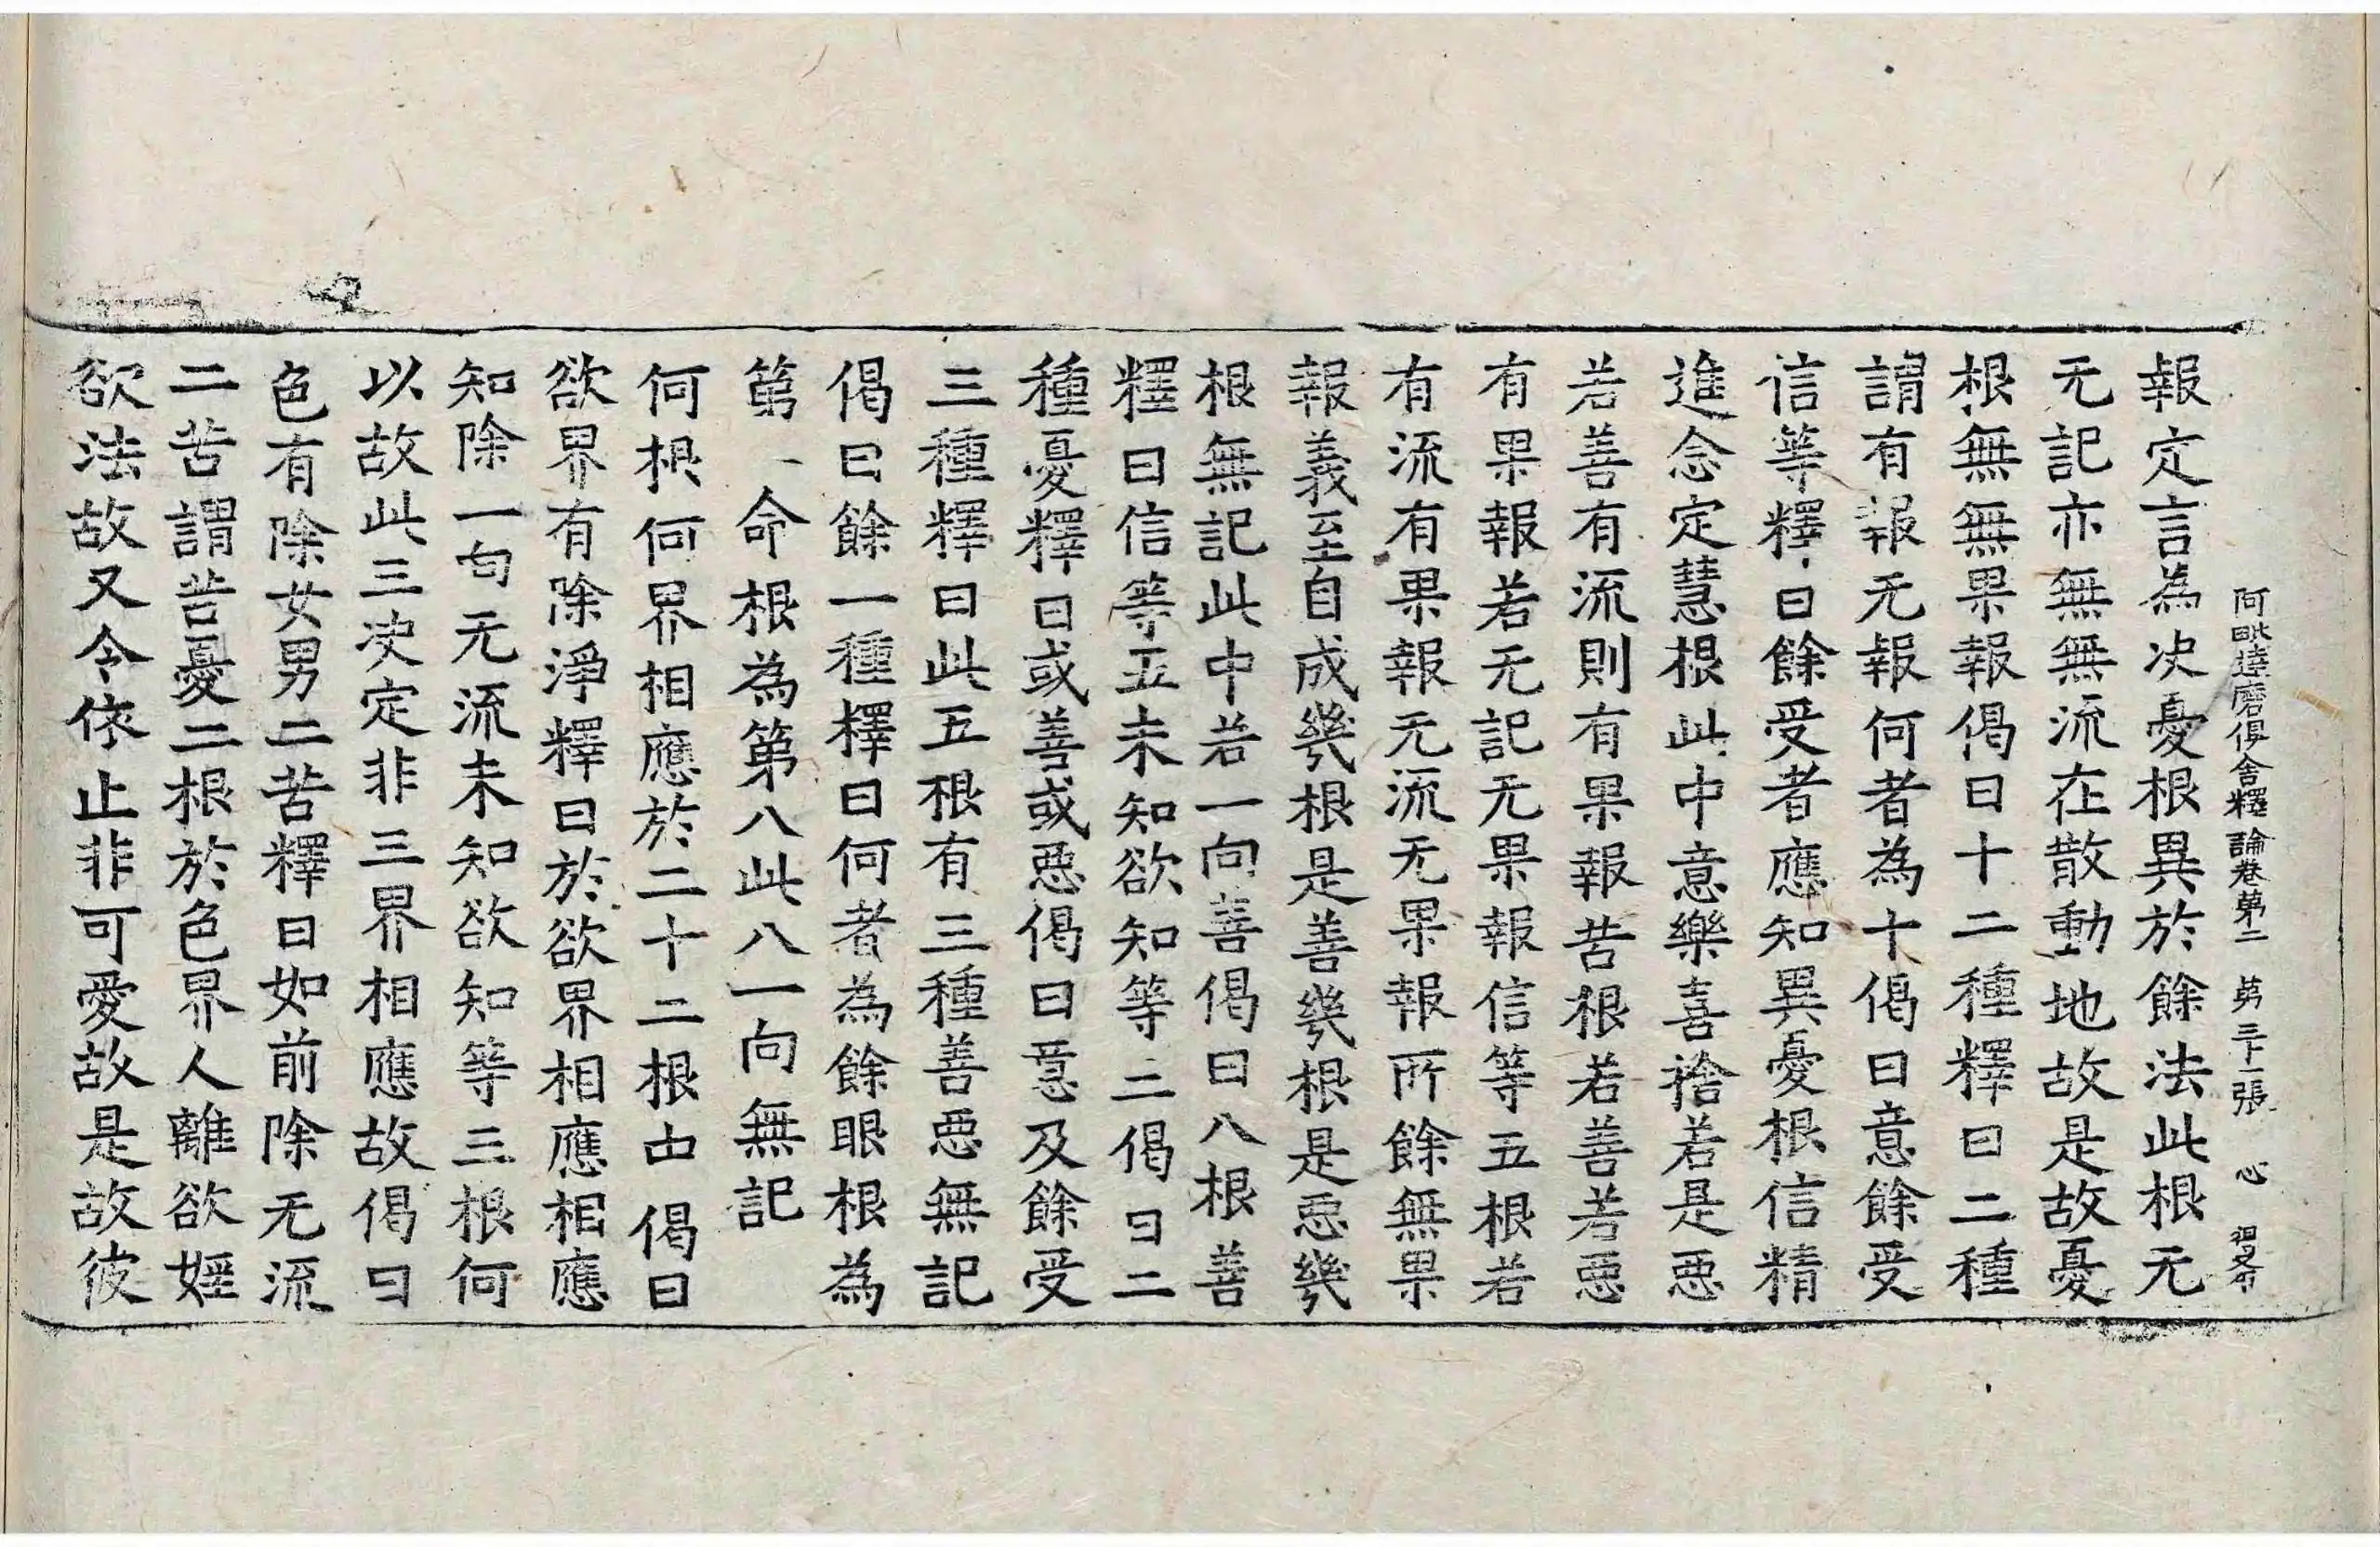 阿毗達磨俱舍釋論卷第二 第三十一張 心
報定言為決憂根異於餘法此根无
无記亦無無流在散動地故是故憂
根無無果報偈曰十二種釋曰二種
謂有報无報何者為十偈曰意餘受
信等釋曰餘受者應知異憂根信精
進念定慧根此中意樂喜捨若是惡
若善有流則有果報苦根若善若惡
有果報若无記无果報信等五根若
有流有果報无流无果報所餘無果
報義至自成幾根是善幾根是惡幾
根無記此中若一向善偈曰八根善
釋曰信等五未知欲知等三偈曰二
種憂釋曰或善或惡偈曰意及餘受
三種釋曰此五根有三種善惡無記
偈曰餘一種釋曰何者為餘眼根為
第一命根為第八此八一向無記
何根何界相應於二十二根中偈曰
欲界有除淨釋曰於欲界相應相應
知除一向无流未知欲知等三根何
以故此三決定非三界相應故偈曰
色有除女男二苦釋曰如前除无流
二苦謂苦憂二根於色界人離欲婬
欲法故又令依止非可愛故是故彼